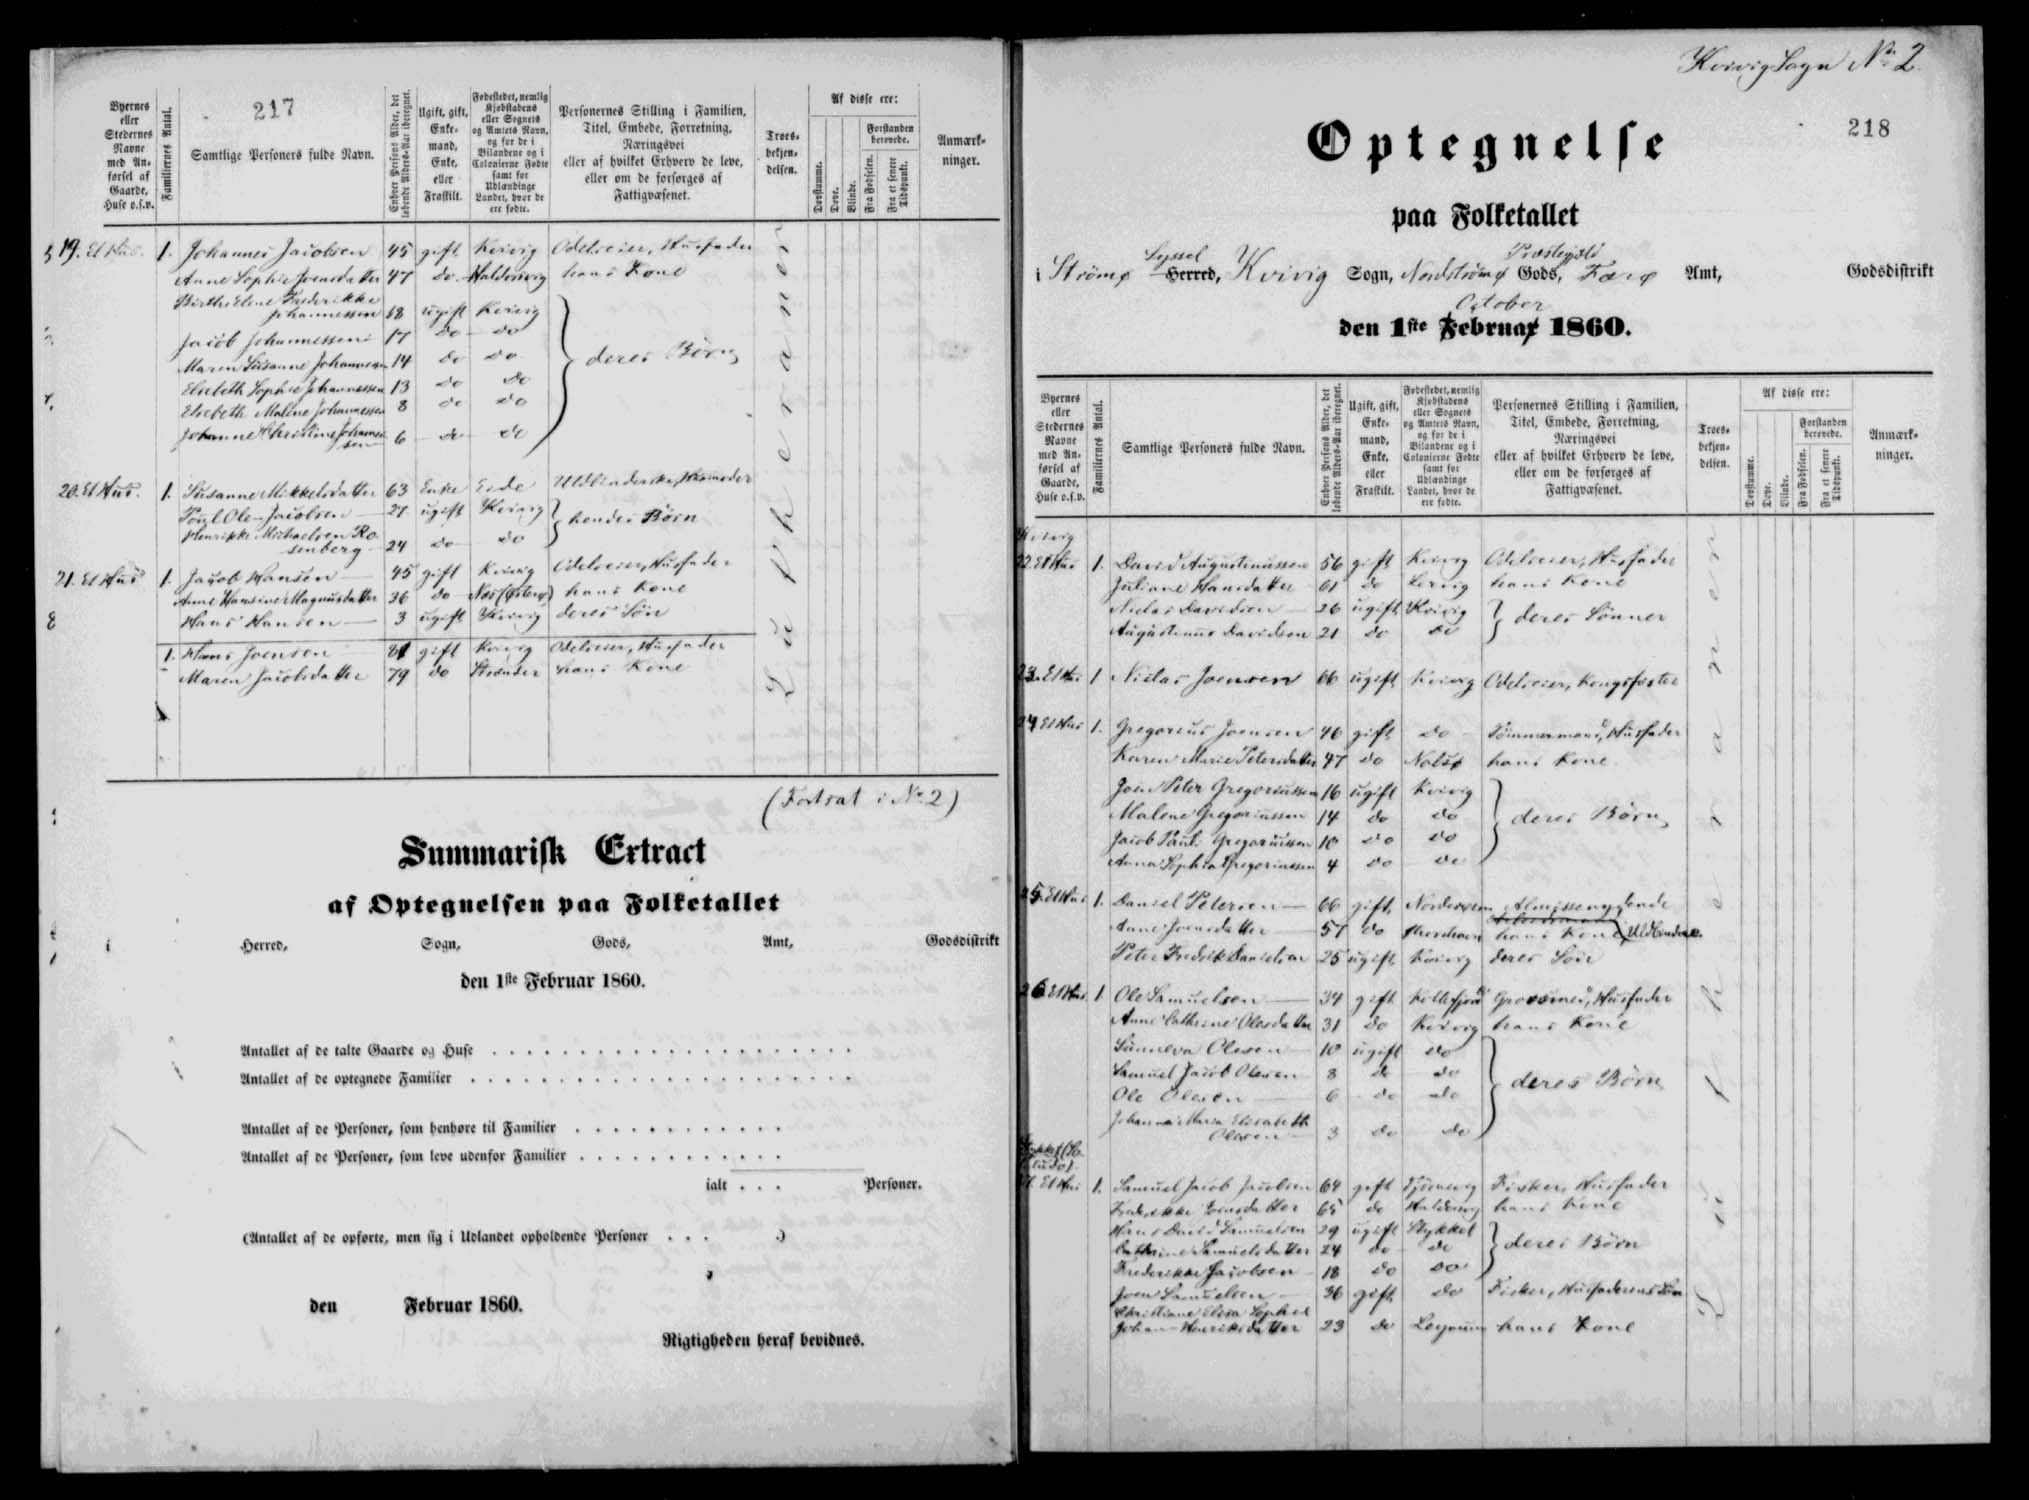 217
Byernes eller Stedernes Navne med Anførsel af Gaarde, Huse o.s.v.
Familiernes Antal.
Samtlige Personers fulde Navn.
Enhver Persons Alder, det løbende Alders-Aar iberegnet.
Ugift, gift, Enkemand, Enke, eller Fraskilt.
Fødestedet, nemlig Kjøbstadens eller Sognets og Amtets Navn, og for de i Bilandene og i Colonierne Fødte samt for Udlændinge Landet, hvor de ere fødte.
Personernes Stilling i Familien, Titel, Embede, Forretning, Næringsvei eller af hvilket Erhverv de leve, eller om de forsørges af Fattigvæsenet.
Troesbekjendelsen.
Af disse ere:
Døvstumme.
Døve.
Blinde.
Forstanden berøvede.
Fra Fødselen.
Fra et senere Tidspunkt.
Anmærkninger.
19. Et Hus. 1. Johannes Jacobsen 45 gift Kvivig Odelseier, Husfader
Anne Sophie Joensdatter 47 do Haldersvig hans Kone
Birthe Elene Frederikke Johannessen 18 ugift Kvivig
Jacob Johannessen 17 do do
Maren Susanne Johannessen 14 do do deres Børn
Elsebeth Sophie Johannessen 13 do do
Elsebeth Malene Johannessen 8 do do
Johanne Christine Johannessen 6 do do
20. Et Hus. 1. Susanne Mikkelsdatter 63 Enke Eide Uldbinderske, Husmoder
Poul Ole Jacobsen 27 ugift Kvivig hendes Børn
Henrikke Michaelsen Rosenberg 24 do do
21. Et Hus 1. Jacob Hansen 45 gift Kvivig Odelseier, Husfader
Anne Hansine Magnusdatter 36 do Næs (Østerø) hans Kone
8 Hans Hansen 3 ugift Kvivig deres Søn
1. Hans Joensen 81 gift Kvivig Odelseier, Husfader
Maren Jacobsdatter 79 do Strænder hans Kone
Lutheraner
(Fortsat i No 2)
Summarisk Extract
af Optegnelsen paa Folketallet
i Herred, Sogn, Gods, Amt, Godsdistrikt
den 1ste Februar 1860.
Antallet af de talte Gaarde og Huse
Antallet af de optegnede Familier
Antallet af de Personer, som henhøre til Familier
Antallet af de Personer, som leve udenfor Familier
ialt . . . Personer.
(Antallet af de opførte, men sig i Udlandet opholdende Personer . . . .)
den Februar 1860.
Rigtigheden heraf bevidnes.
Kvivig Sogn No 2.
218
Optegnelse
paa Folketallet
Syssel Præstegjeld
i Strømø Herred, Kvivig Sogn, Nordstrømø Gods, Færø Amt, Godsdistrikt
October
den 1ste Februar 1860.
Byernes eller Stedernes Navne med Anførsel af Gaarde, Huse o.s.v.
Familiernes Antal.
Samtlige Personers fulde Navn.
Enhver Persons Alder, det løbende Alders-Aar iberegnet.
Ugift, gift, Enkemand, Enke, eller Fraskilt.
Fødestedet, nemlig Kjøbstadens eller Sognets og Amtets Navn, og for de i Bilandene og i Colonierne Fødte samt for Udlændinge Landet, hvor de ere fødte.
Personernes Stilling i Familien, Titel, Embede, Forretning, Næringsvei eller af hvilket Erhverv de leve, eller om de forsørges af Fattigvæsenet.
Troesbekjendelsen.
Af disse ere:
Døvstumme.
Døve.
Blinde.
Forstanden berøvede.
Fra Fødselen.
Fra et senere Tidspunkt.
Anmærkninger.
Kvivig
22. Et Hus 1. David Augustinussen 56 gift Kvivig Odelseier, Husfader
Juliane Hansdatter 61 do Lervig hans Kone
Niclas Davidsen 26 ugift Kvivig deres Sønner
Augustinus Davidsen 21 do do
23. Et Hus 1 Niclas Joensen 66 ugift Kvivig Odelseier, Kongsfæster
24 Et Hus 1. Gregorius Joensen 46 gift do Tømmermand, Husfader
Karen Marie Petersdatter 47 do Nolsø hans Kone
Joen Peter Gregoriussen 16 ugift Kvivig
Malene Gregoriussen 14 do do deres Børn
Jacob Pauli Gregoriussen 10 do do
Anna Sophia Gregoriussen 4 do do
25. Et Hus 1. Daniel Petersen 66 gift Norderøerne Almissenydende
Anne Joensdatter 57 do Thorshavn hans Kone Uldbinderske.
Peter Fredrik Danielsen 25 ugift Kvivig deres Søn
26 Et Hus. 1 Ole Samuelsen 34 gift Kollefjord Grovsmed, Husfader
Anne Cathrine Olesdatter 31 do Kvivig hans Kone
Sunneva Olesen 10 ugift do
Samuel Jacob Olesen 8 do do deres Børn
Ole Olesen 6 do do
Johanna Maria Elisabeth Olesen 3 do do
Et Hus 1. Samuel Jacob Jacobsen 64 gift Tjørnevig Fisker, Husfader
Frederikke Joensdatter 65 do Haldersvig hans Kone
Hans David Samuelsen 29 ugift Stykket
Cathrine Samuelsdatter 24 do do deres Børn
Frederikke Jacobsen 18 do do
Joen Samuelsen 36 gift do Fisker, Husfaderens Søn
Christiane Elisa Sophie
Johan-Henriksdatter 23 do Leynum hans Kone
Lutheraner